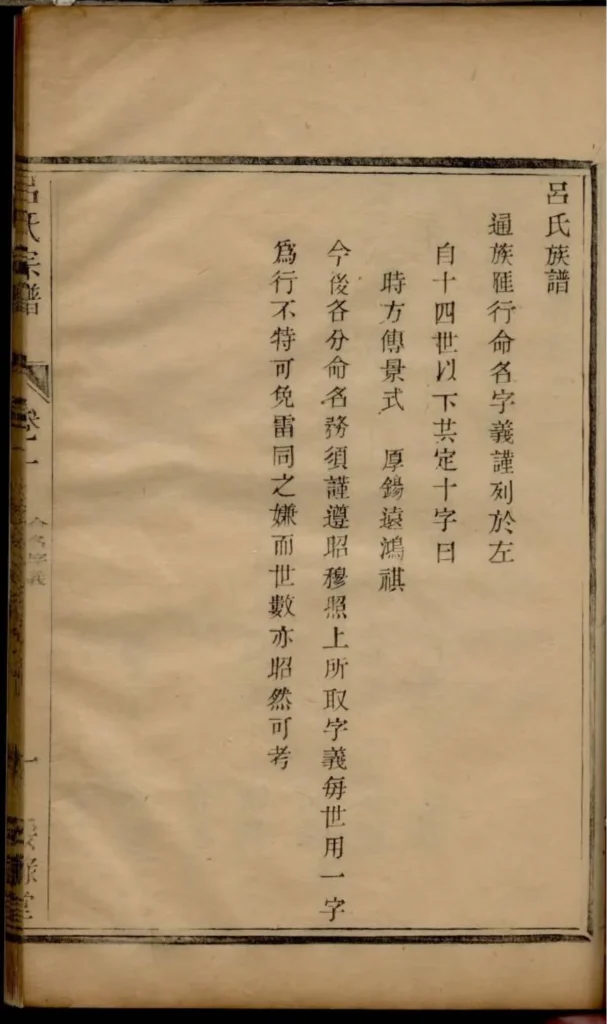 呂氏族譜
通族匯行命名字義謹列於左
自十四世以下共定十字曰
時方傳景式　厚錫遠鴻祺
今後各分命名務須謹遵昭穆照上所取字義每世用一字
爲行不特可免雷同之嫌而世數亦昭然可考
呂氏宗譜
卷一
命名字義
一